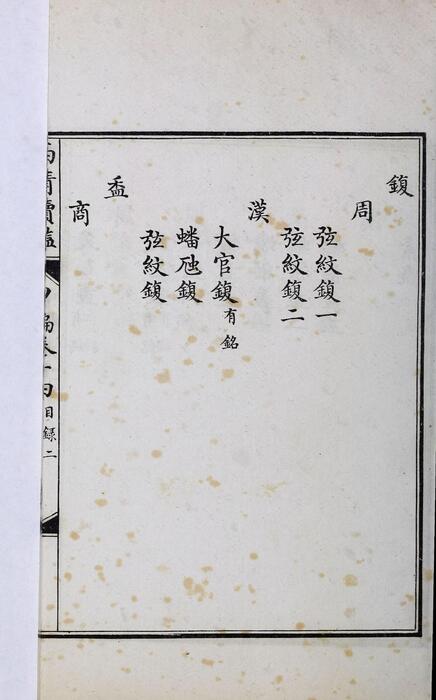 鍑
周
弦紋鍑一
弦紋鍑二
漢
大官鍑有銘
蟠虺鍑
弦紋鍑
盉
商
西清續鑑
編卷十四
目錄二